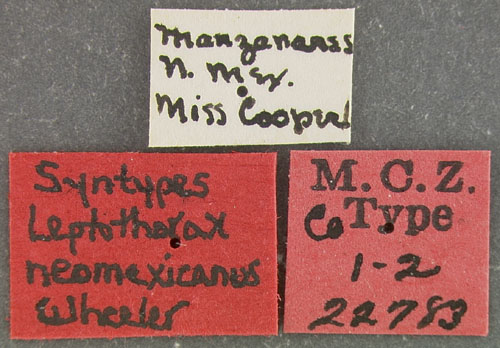 Manzanares
N. Mex.
Miss Cooper
Syntypes
Leptothorax
neomexicanus
Wheeler
M. C. Z.
Co Type
1-2
22783